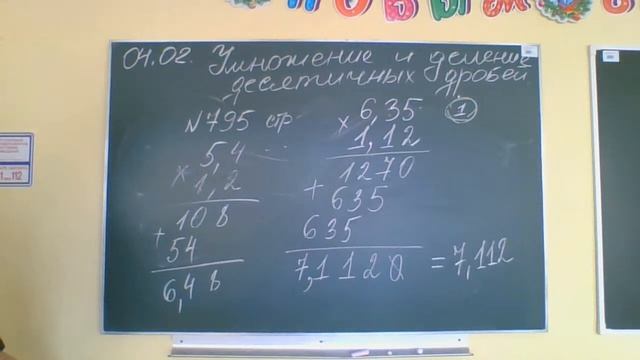 04.02. Умножение и деление
десятичных дробей
N795 стр
5,4
× 1,2
108
+ 54
6,48
6,35
× 1,12
1270
+ 635
635
7,1120 = 7,112
1
112